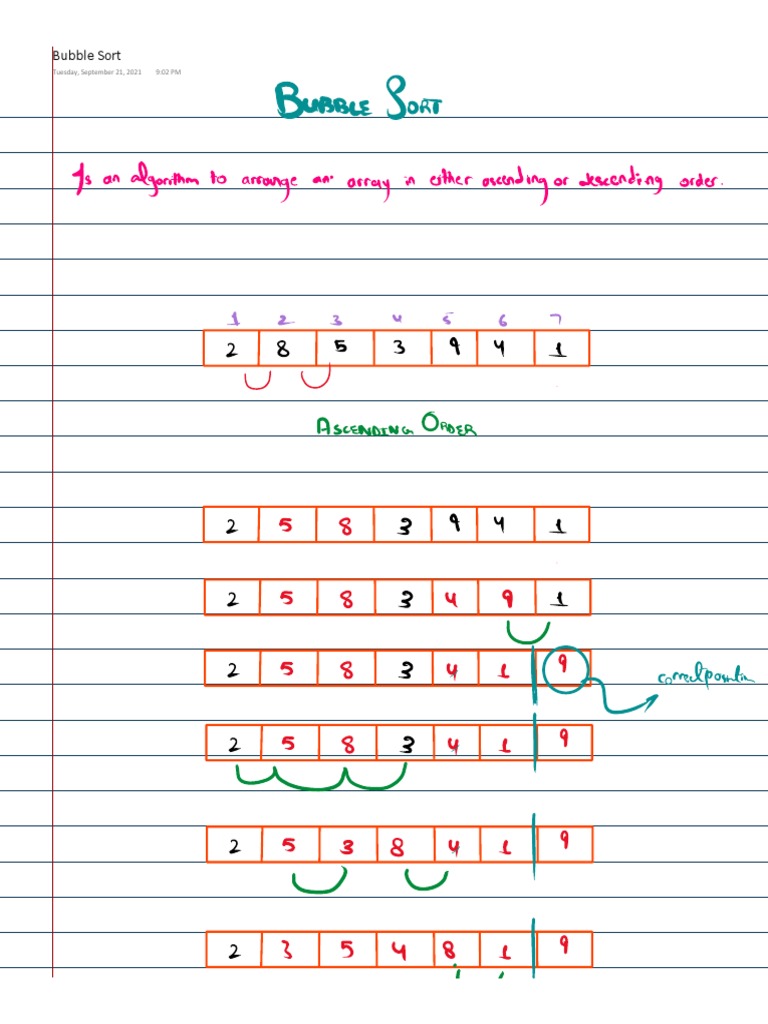 Bubble Sort
Tuesday, September 21, 2021 9:02 PM
BUBBLE SORT
Is an algorithm to arrange an array in either ascending or descending order.
1 2 3 4 5 6 7
2 8 5 3 9 4 1
ASCENDING ORDER
2 5 8 3 9 4 1
2 5 8 3 4 9 1
2 5 8 3 4 1 9
correct position
2 5 8 3 4 1 9
2 5 3 8 4 1 9
2 3 5 4 8 1 9